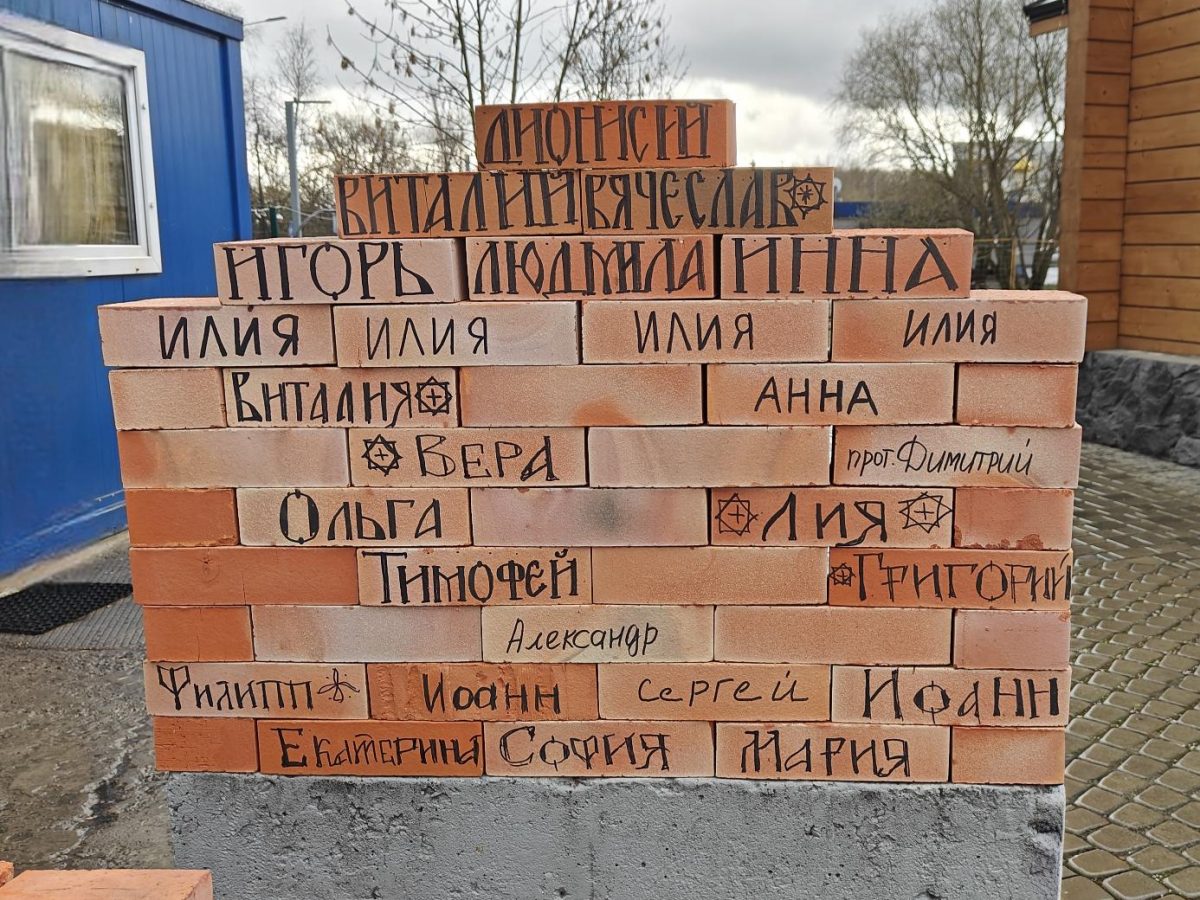 ДИОНИСІЙ
ВИТАЛИЙ ВЯЧЕСЛАВ
ИГОРЬ ЛЮДМИЛА ИННА
ИЛИЯ ИЛИЯ ИЛИЯ ИЛИЯ
ВИТАЛИЯ АННА
ВЕРА прот. Димитрий
ОЛЬГА ЛИЯ
ТИМОФЕЙ ГРИГОРИЙ
Александр
ФИЛИПП ИОАНН СЕРГЕЙ ИОАНН
ЕКАТЕРИНА СОФИЯ МАРИЯ